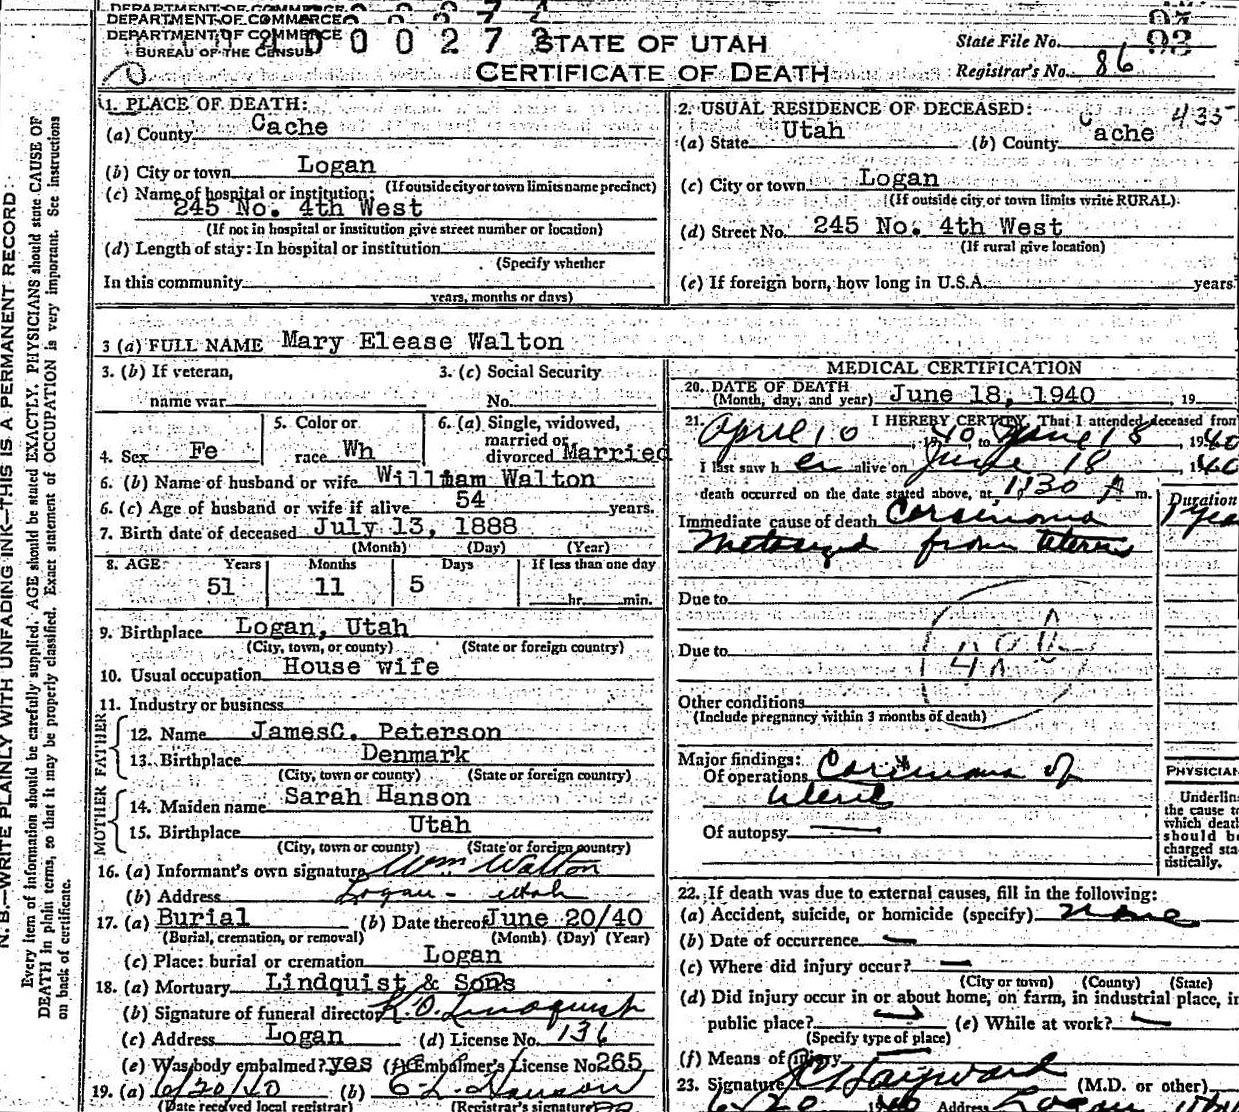 DEPARTMENT OF COMMERCE
BUREAU OF THE CENSUS
STATE OF UTAH
CERTIFICATE OF DEATH
State File No. 93
Registrar's No. 86
1. PLACE OF DEATH:
(a) County Cache
(b) City or town Logan
(If outside city or town limits name precinct)
(c) Name of hospital or institution:
245 No. 4th West
(If not in hospital or institution give street number or location)
(d) Length of stay: In hospital or institution
(Specify whether
In this community
years, months or days)
2. USUAL RESIDENCE OF DECEASED: 435
(a) State Utah (b) County Cache
(c) City or town Logan
(If outside city or town limits write RURAL)
(d) Street No. 245 No. 4th West
(If rural give location)
(e) If foreign born, how long in U.S.A. years
3 (a) FULL NAME Mary Elease Walton
3. (b) If veteran,
name war
3. (c) Social Security
No.
4. Sex Fe
5. Color or
race Wh
6. (a) Single, widowed,
married or
divorced Married
6. (b) Name of husband or wife William Walton
6. (c) Age of husband or wife if alive 54 years.
7. Birth date of deceased July 13, 1888
(Month) (Day) (Year)
8. AGE Years Months Days If less than one day
51 11 5
hr. min.
9. Birthplace Logan, Utah
(City, town, or county) (State or foreign country)
10. Usual occupation House wife
11. Industry or business
FATHER
12. Name JamesC. Peterson
13. Birthplace Denmark
(City, town or county) (State or foreign country)
MOTHER
14. Maiden name Sarah Hanson
15. Birthplace Utah
(City, town or county) (State or foreign country)
16. (a) Informant's own signature Wm. Walton
(b) Address Logan - Utah
17. (a) Burial (b) Date thereof June 20/40
(Burial, cremation, or removal) (Month) (Day) (Year)
(c) Place: burial or cremation Logan
18. (a) Mortuary Lindquist & Sons
(b) Signature of funeral director K. O. Lindquist
(c) Address Logan (d) License No. 136
(e) Was body embalmed? yes (f) Embalmer's License No. 265
19. (a) 6/20/40 (b)
(Date received local registrar) (Registrar's signature)
MEDICAL CERTIFICATION
20. DATE OF DEATH
(Month, day, and year) June 18, 1940, 19
21. I HEREBY CERTIFY, That I attended deceased from
April 10, 1940 to June 18, 1940
I last saw her alive on June 18, 1940
death occurred on the date stated above, at 1:30 A m.
Duration
Immediate cause of death Carsinoma 1 yea
Metasized from uterus
Due to
Due to
Other conditions
(Include pregnancy within 3 months of death)
Major findings:
Of operations Carcinoma of
uteri
Of autopsy
PHYSICIAN
Underline
the cause to
which death
should be
charged sta-
tistically.
22. If death was due to external causes, fill in the following:
(a) Accident, suicide, or homicide (specify) None
(b) Date of occurrence
(c) Where did injury occur?
(City or town) (County) (State)
(d) Did injury occur in or about home, on farm, in industrial place, in
public place? (e) While at work?
(Specify type of place)
(f) Means of injury
23. Signature J C Hayward (M.D. or other)
1940 Address Logan Utah
N. B.—WRITE PLAINLY WITH UNFADING INK—THIS IS A PERMANENT RECORD
Every item of information should be carefully supplied. AGE should be stated EXACTLY. PHYSICIANS should state CAUSE OF
DEATH in plain terms, so that it may be properly classified. Exact statement of OCCUPATION is very important. See instructions
on back of certificate.